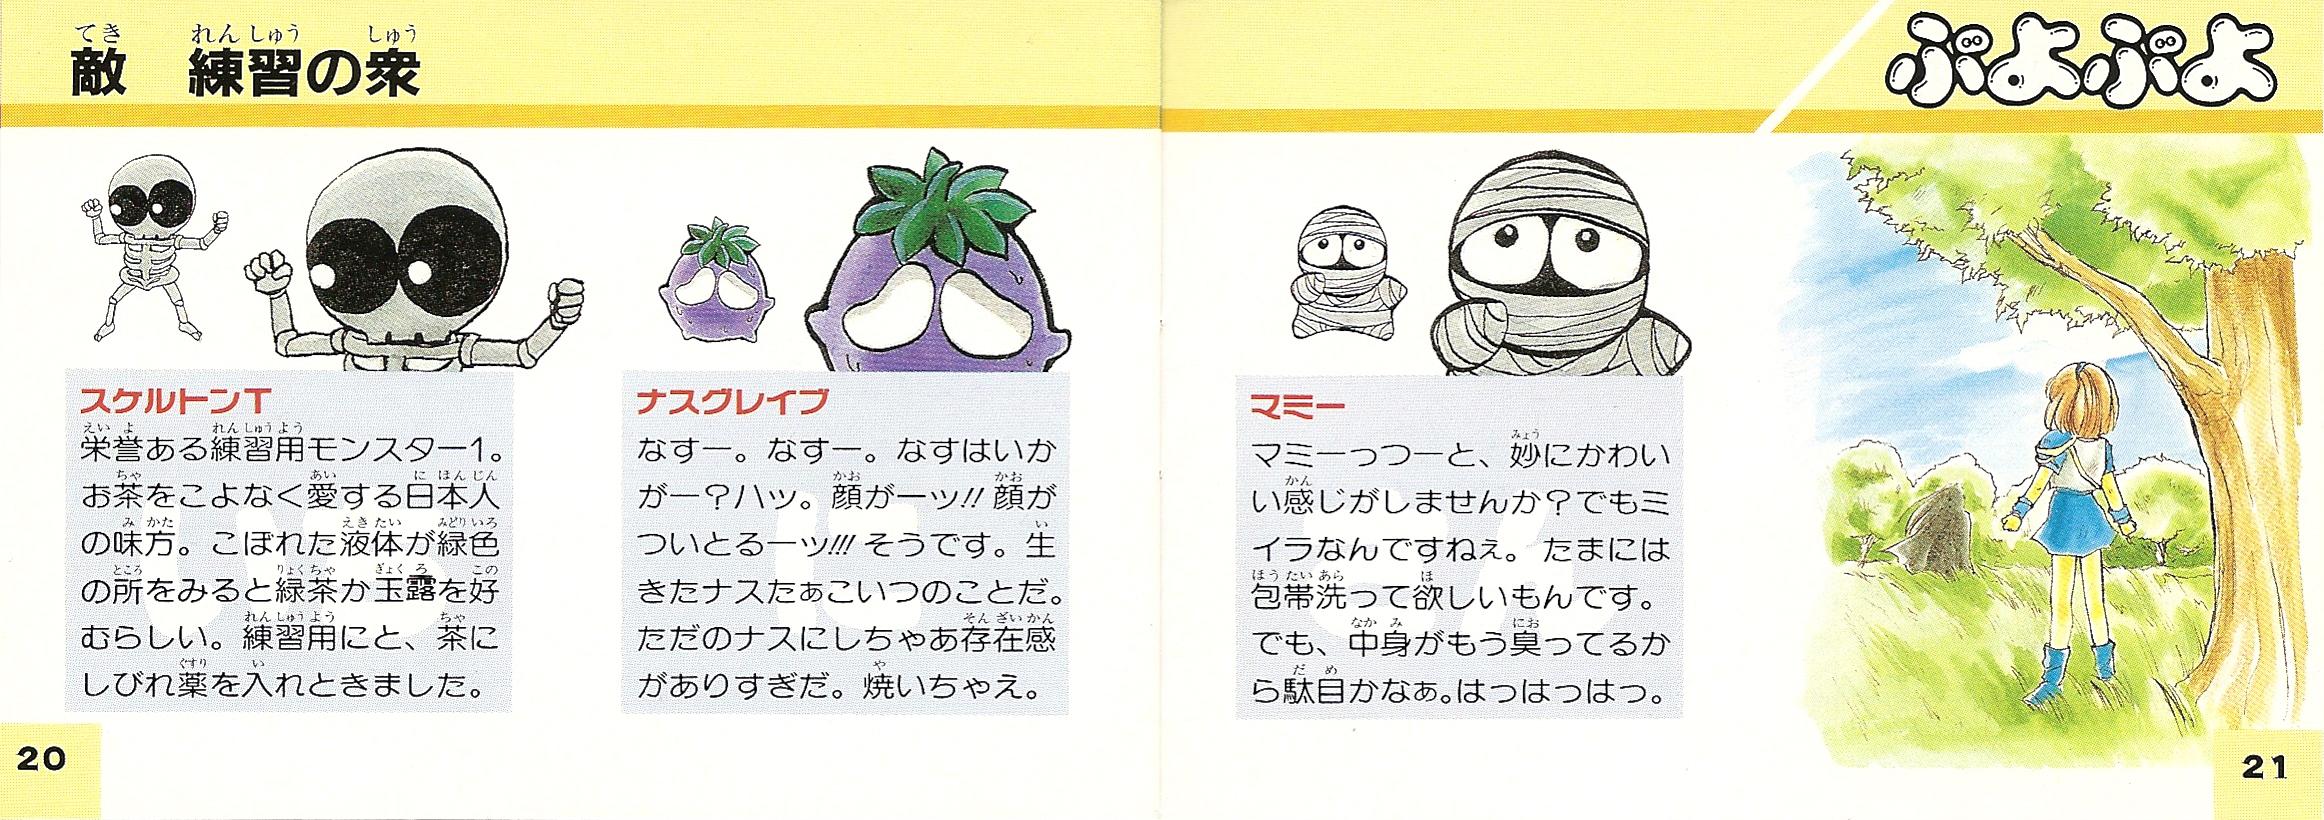 敵 練習の衆
ぷよぷよ
スケルトンT
栄誉ある練習用モンスター1。
お茶をこよなく愛する日本人
の味方。こぼれた液体が緑色
の所をみると緑茶か玉露を好
むらしい。練習用にと、茶に
しびれ薬を入れときました。
ナスグレイブ
なすー。なすー。なすはいか
がー?ハッ。顔がーッ!!顔が
ついとるーッ!!!そうです。生
きたナスたぁこいつのことだ。
ただのナスにしちゃあ存在感
がありすぎだ。焼いちゃえ。
マミー
マミーっつーと、妙にかわい
い感じがしませんか?でもミ
イラなんですねぇ。たまには
包帯洗って欲しいもんです。
でも、中身がもう臭ってるか
ら駄目かなぁ。はっはっはっ。
20
21